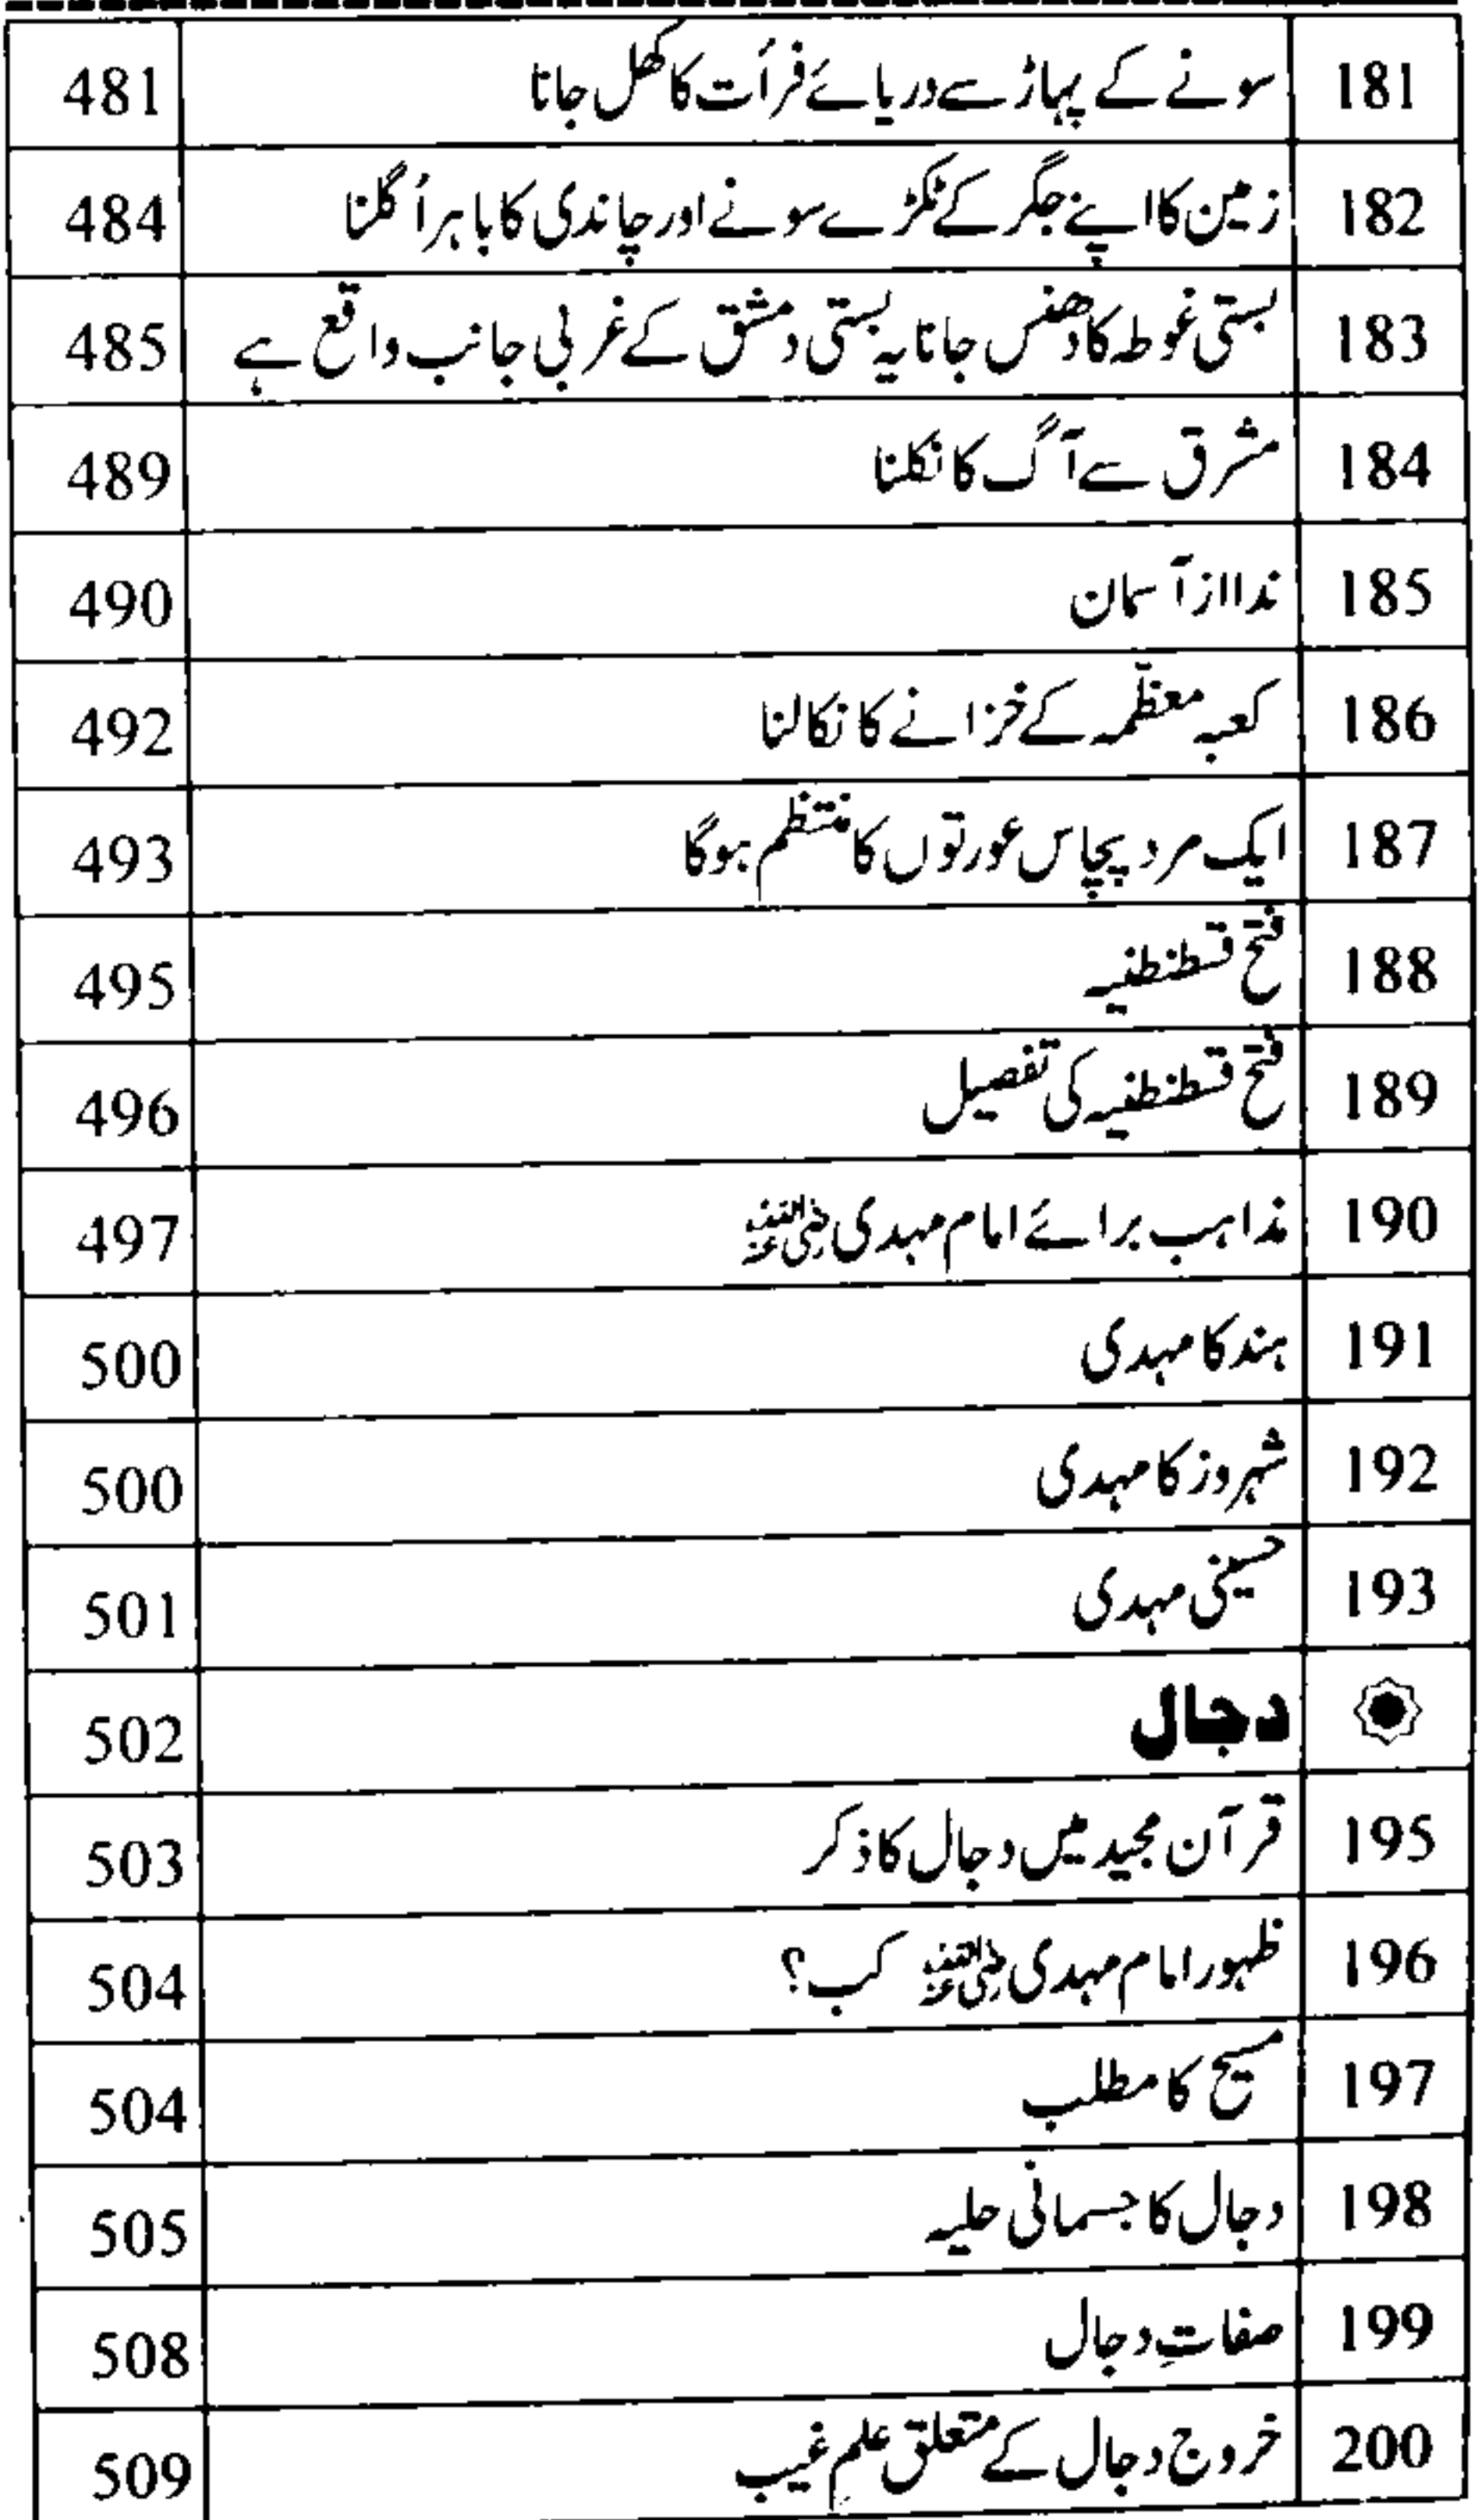 181 سونے کے پہاڑ سے دریائے فرأت کا کھل جانا 481
182 زمین کا اپنے جگر کے ٹکڑے سونے اور چاندی کا باہر اُگلنا 484
183 بستی غوطہ کا دھنس جانا یہ بستی دمشق کے غربی جانب واقع ہے 485
184 مشرق سے آگ کا نکلنا 489
185 ندا از آسمان 490
186 کعبہ معظمہ کے خزانے کا نکالنا 492
187 ایک مرد پچاس عورتوں کا منتظم ہوگا 493
188 فتح قسطنطنیہ 495
189 فتح قسطنطنیہ کی تفصیل 496
190 مذاہب برائے امام مہدی رضی اللہ عنہ 497
191 ہند کا مہدی 500
192 شہروز کا مہدی 500
193 حسینی مہدی 501
دجال 502
195 قرآن مجید میں دجال کا ذکر 503
196 ظہور امام مہدی رضی اللہ عنہ کب؟ 504
197 مسیح کا مطلب 504
198 دجال کا جسمانی حلیہ 505
199 صفاتِ دجال 508
200 خروج دجال کے متعلق علم غیب 509